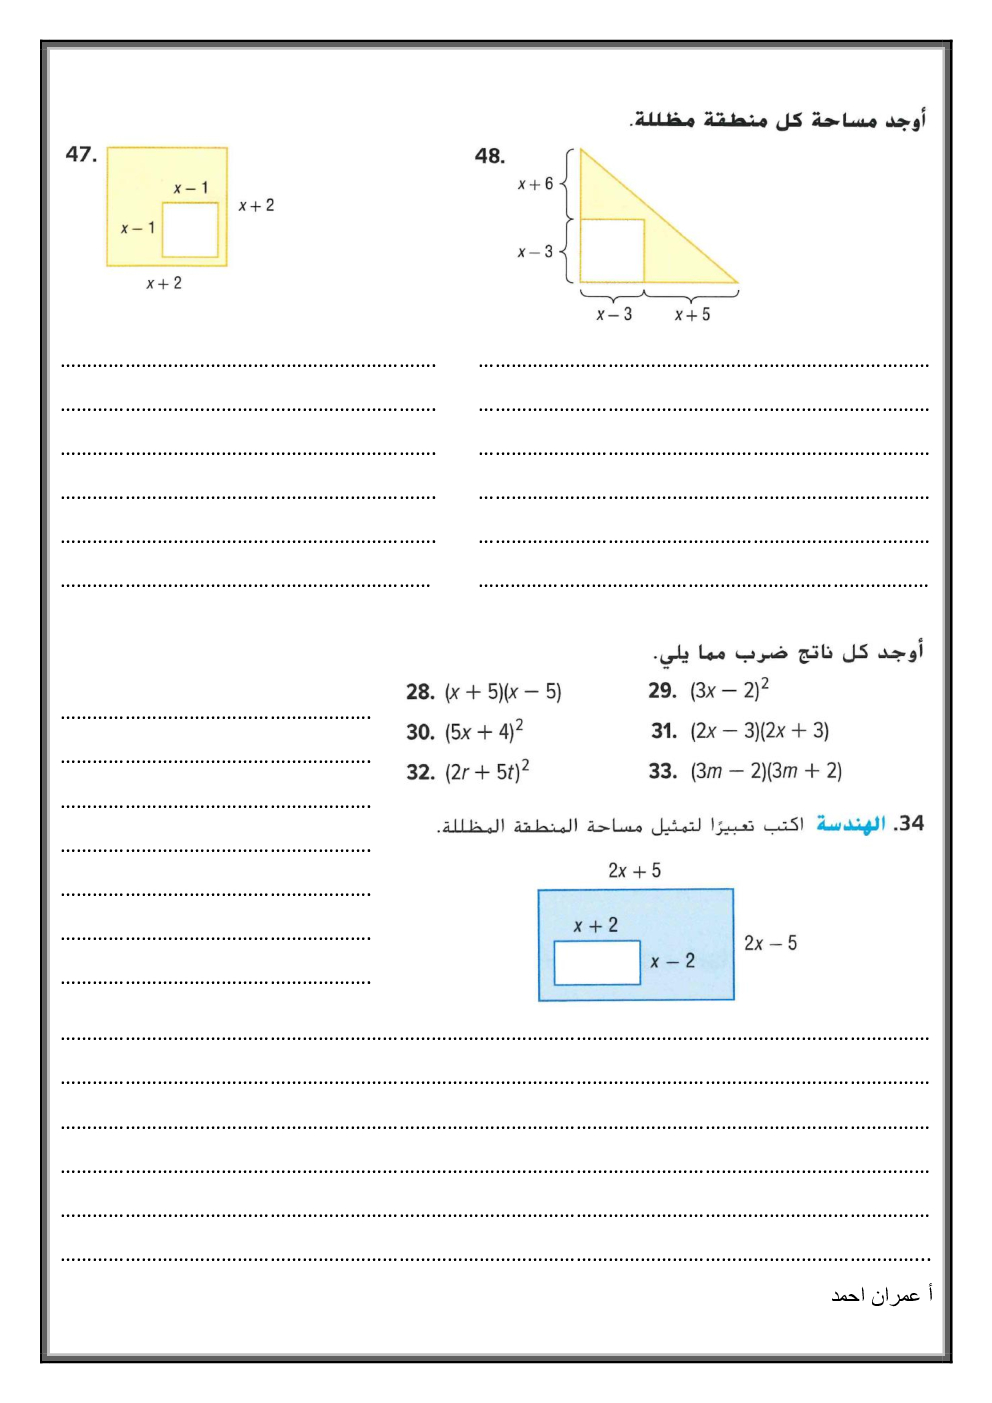 أوجد مساحة كل منطقة مظللة.
47.
x − 1
x − 1
x + 2
x + 2
48.
x + 6
x − 3
x − 3
x + 5
أوجد كل ناتج ضرب مما يلي.
28. (x + 5)(x − 5)
29. (3x − 2)²
30. (5x + 4)²
31. (2x − 3)(2x + 3)
32. (2r + 5t)²
33. (3m − 2)(3m + 2)
34. الهندسة اكتب تعبيرًا لتمثيل مساحة المنطقة المظللة.
2x + 5
x + 2
x − 2
2x − 5
أ عمران احمد